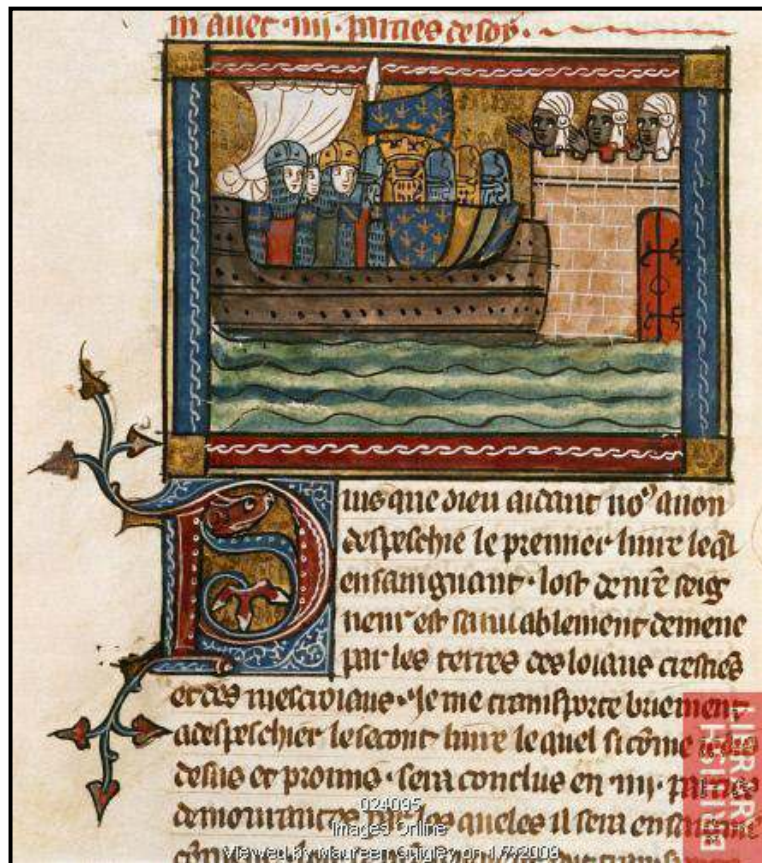 in auec .iiij. parties de soy.
uis que dieu aidant no9 auon
despeschie le premier liure leql
enseingnant. lost de nr̃e seig
neur est sauuablement demene
par les terres des loiaus crestiẽs
et des mescroiaus. Je me transporte briement
a despeschier le secont liure le quel si cõme
desus est promis. sera conclus en iiij. parties
demourantes par les queles il sera
024095
Images Online
Viewed by Maureen Quigley on 1/7/2009
BRITISH
LIBRARY